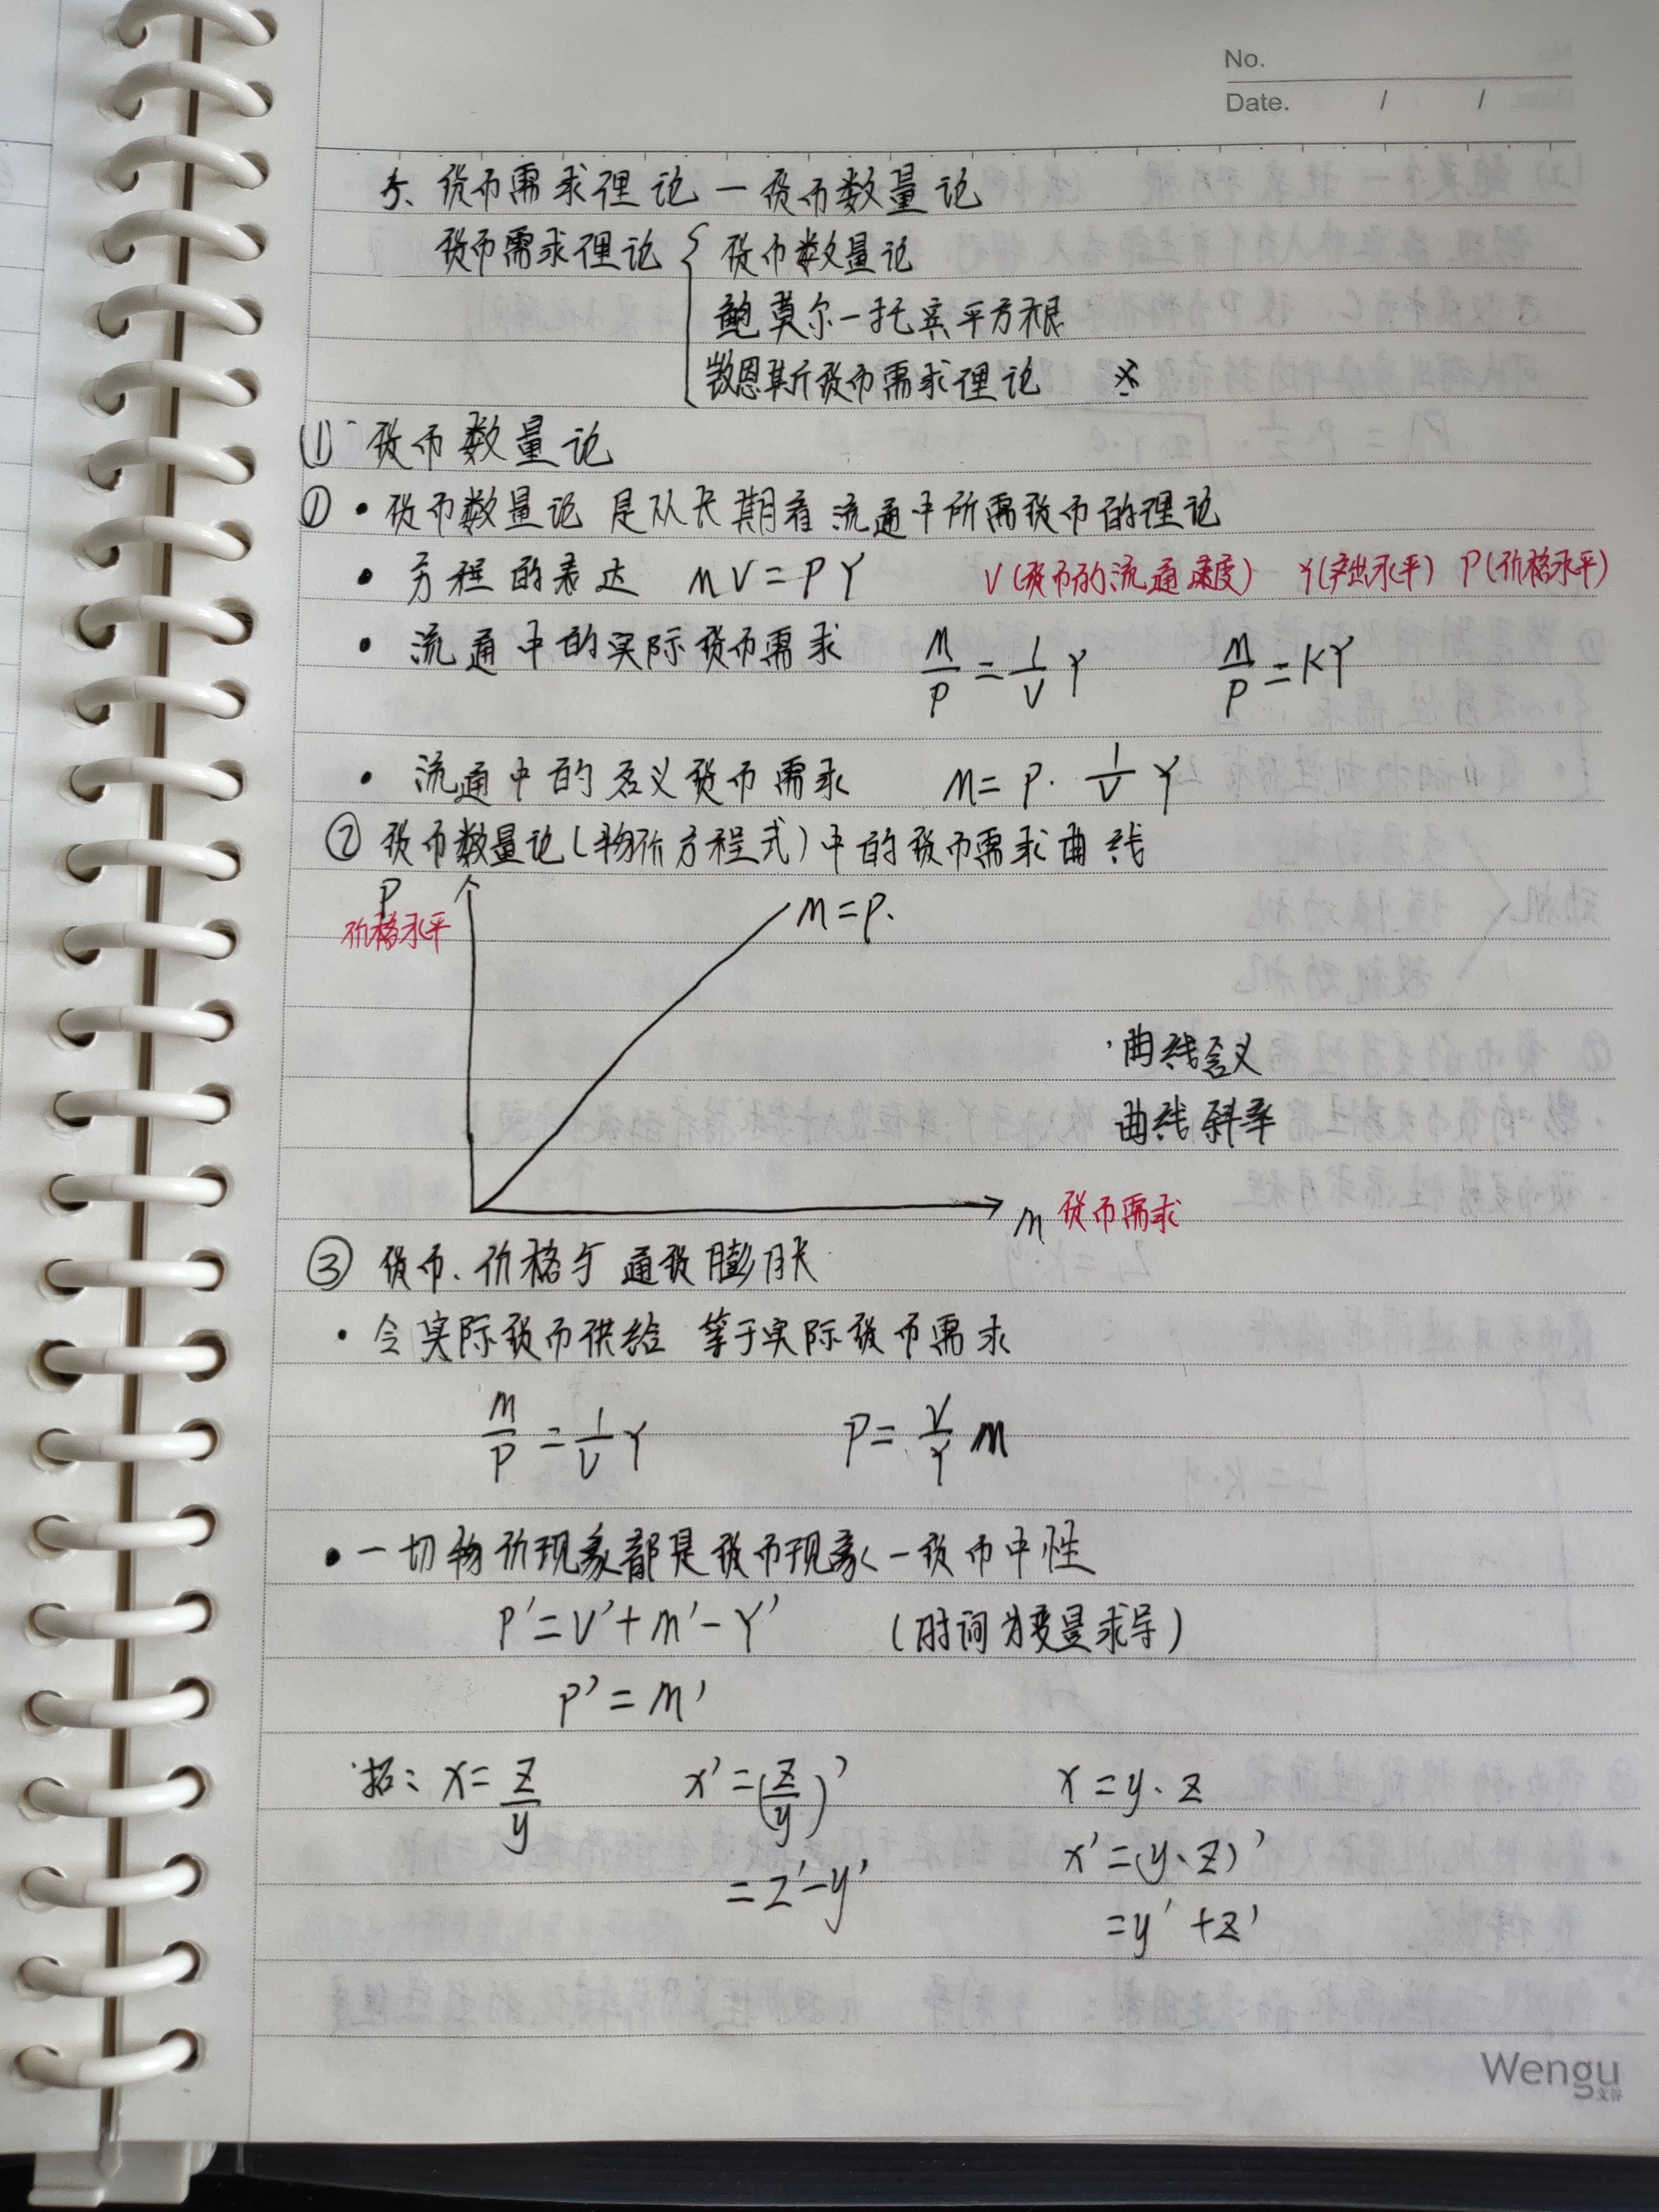 No.
Date. / /
5、货币需求理论一货币数量论
货币需求理论 { 货币数量论
鲍莫尔一托宾平方根
凯恩斯货币需求理论 ※
(1) 货币数量论
① • 货币数量论 是从长期看流通中所需货币的理论
• 方程的表达 MV=PY V(货币的流通速度) Y(产出水平) P(价格水平)
• 流通中的实际货币需求 M/P=1/V Y M/P=KY
• 流通中的名义货币需求 M=P·1/V Y
② 货币数量论(物价方程式)中的货币需求曲线
P
价格水平
M=P.
曲线含义
曲线斜率
M 货币需求
③ 货币、价格与通货膨胀
• 令实际货币供给 等于实际货币需求
M/P=1/V Y P=V/Y M
• 一切物价现象都是货币现象一货币中性
P'=V'+M'-Y' (时间为变量求导)
P'=M'
拓: x=z/y x'=(z/y)' x=y·z
=z'-y' x'=(y·z)'
=y'+z'
Wengu
文谷